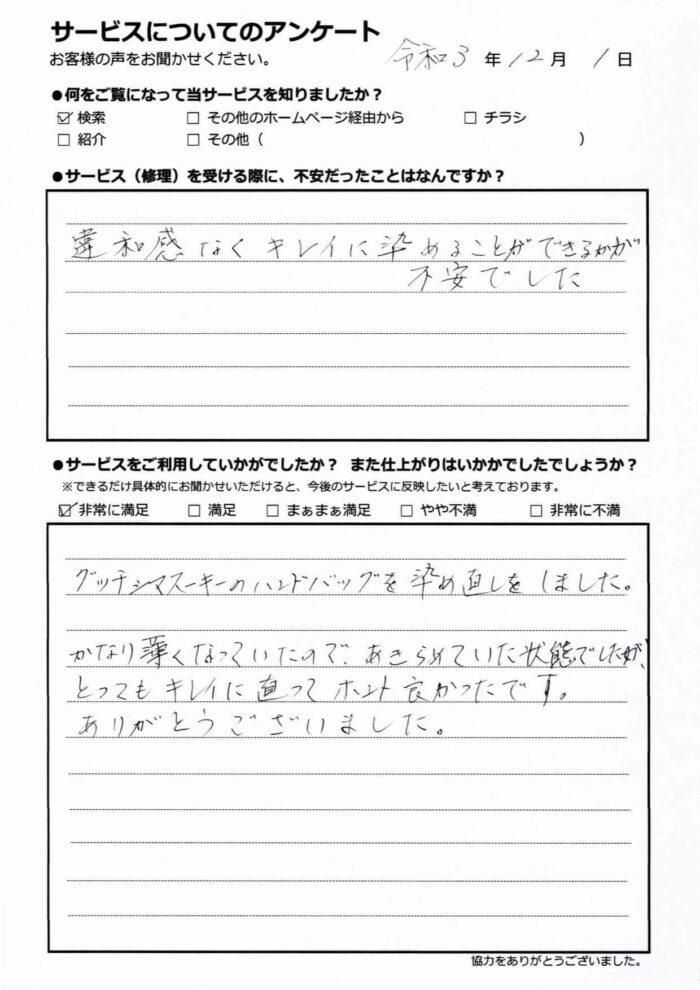 サービスについてのアンケート
お客様の声をお聞かせください。
令和3年12月1日
●何をご覧になって当サービスを知りましたか？
☑ 検索 □ その他のホームページ経由から □ チラシ
□ 紹介 □ その他（ ）
●サービス（修理）を受ける際に、不安だったことはなんですか？
違和感なくキレイに染めることができるかが
不安でした
●サービスをご利用していかがでしたか？ また仕上がりはいかかでしたでしょうか？
※できるだけ具体的にお聞かせいただけると、今後のサービスに反映したいと考えております。
☑ 非常に満足 □ 満足 □ まぁまぁ満足 □ やや不満 □ 非常に不満
グッチシマスーキーのハンドバッグを染め直しをしました。
かなり薄くなっていたので、あきらめていた状態でしたが、
とってもキレイに直ってホント良かったです。
ありがとうございました。
協力をありがとうございました。